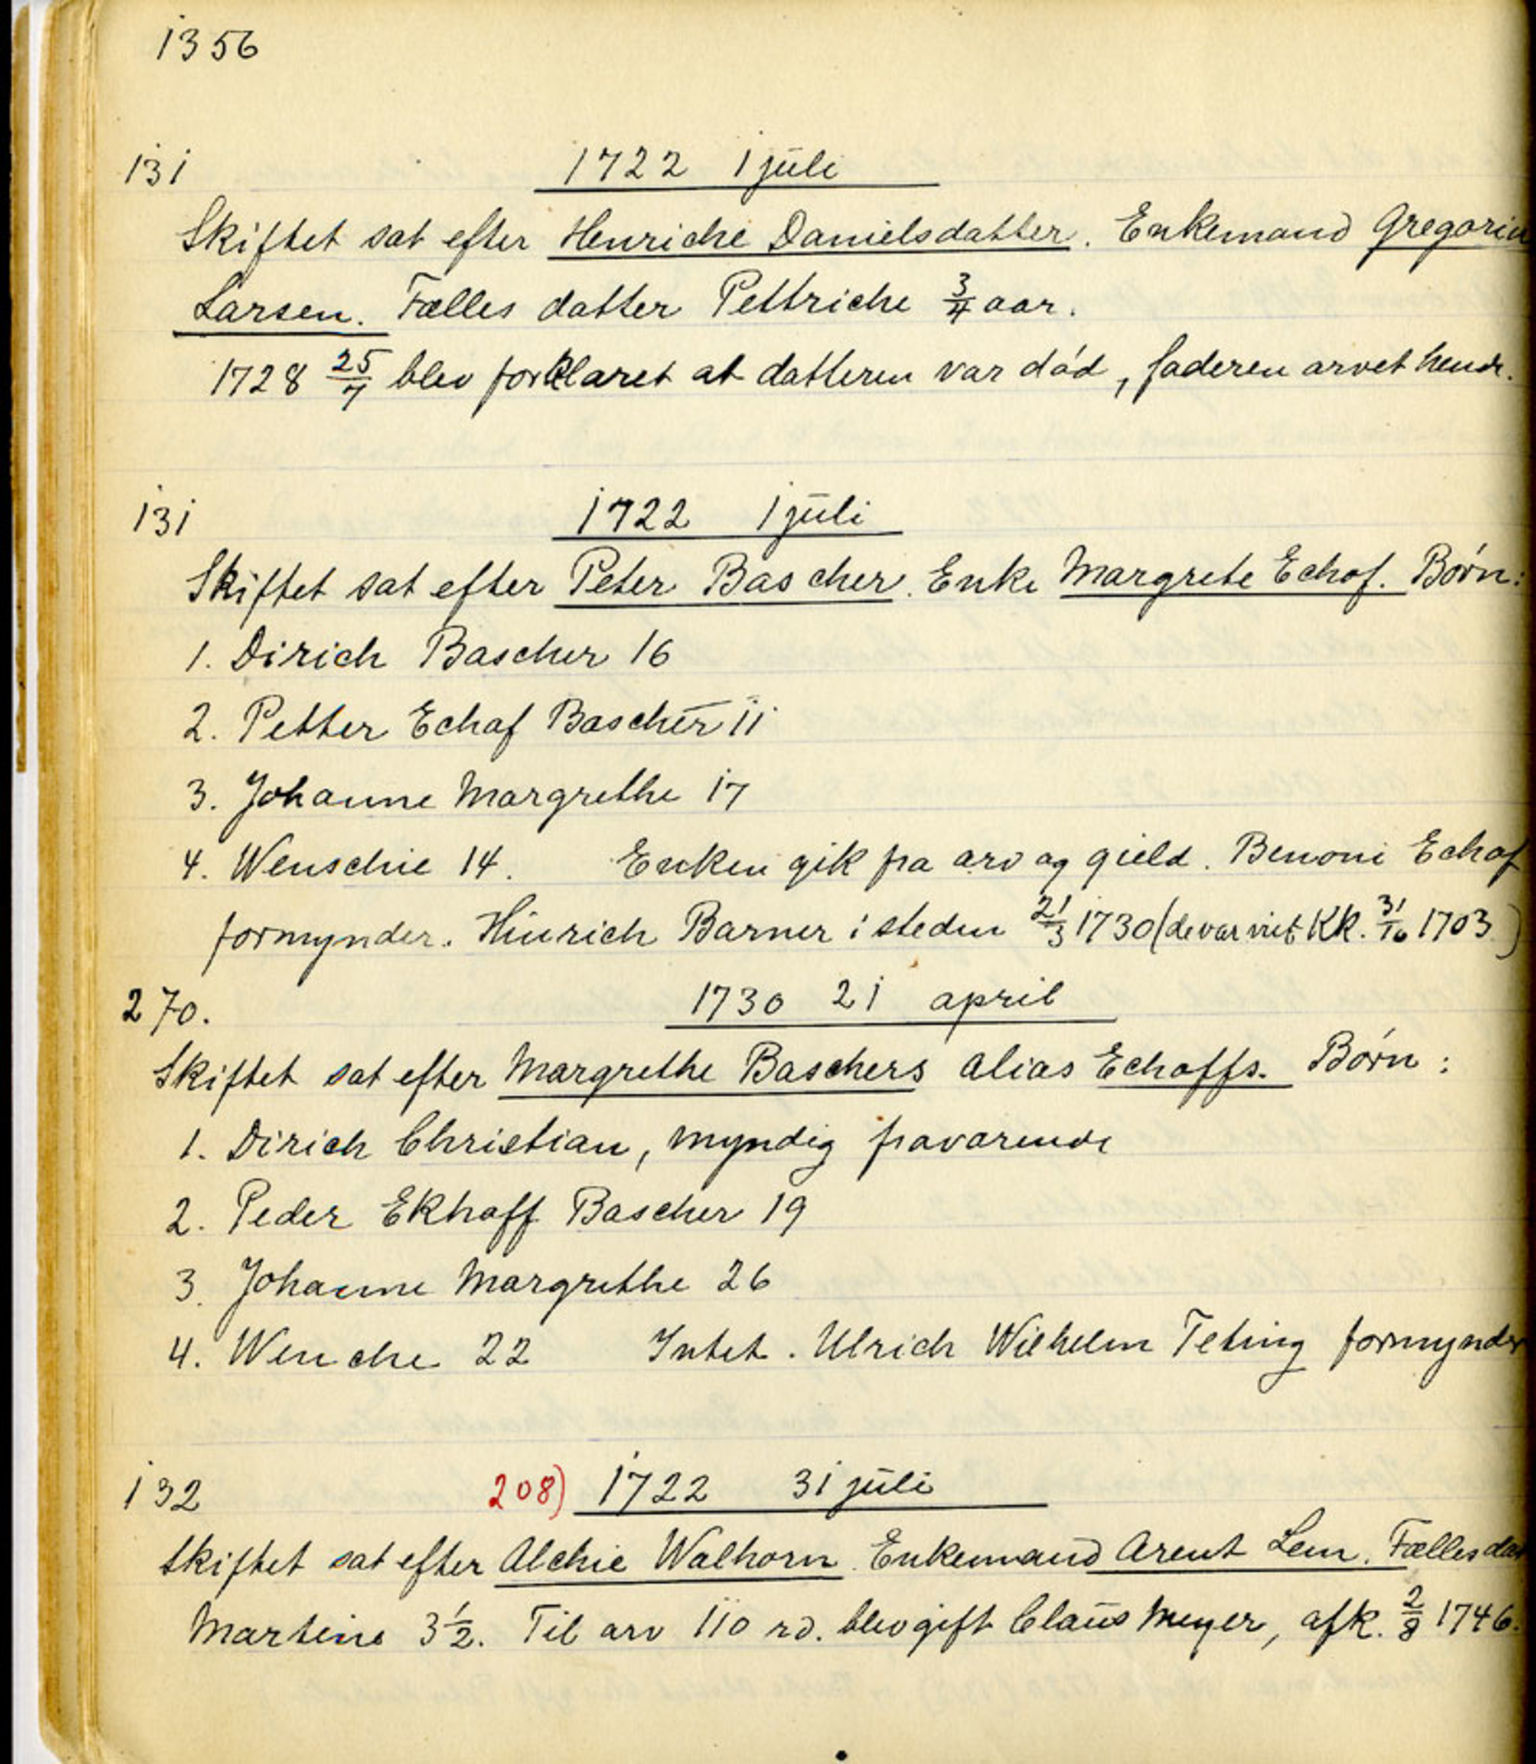 1356
131 1722 1 juli
Skiftet sat efter Henriche Danielsdatter. Enkemand Gregorius
Larsen. Fælles datter Pettriche 3/4 aar.
1728 25/7 blev forklaret at datteren var død, faderen arvet hende.
131 1722 1 juli
Skiftet sat efter Peter Bascher. Enke Margrete Echof. Børn:
1. Dirich Bascher 16
2. Petter Echaf Bascher 11
3. Johanne Margrethe 17
4. Wenschie 14. Enken gik fra arv og gield. Benoni Echof
formynder. Hinrich Barner i steden 21/3 1730 (de var viet Kk. 31/10 1703)
270. 1730 21 april
Skiftet sat efter Margrethe Baschers alias Echoffs. Børn:
1. Dirich Christian, myndig fraværende
2. Peder Ekhoff Bascher 19
3. Johanne Margrethe 26
4. Wenche 22 Intet. Ulrich Wilhelm Teting formynder
132 208) 1722 31 juli
Skiftet sat efter Alchie Walhorn. Enkemand Arent Lem. Fælles dat
Martine 3 1/2. Til arv 110 rd. blev gift Claus Meyer, afk. 2/8 1746.